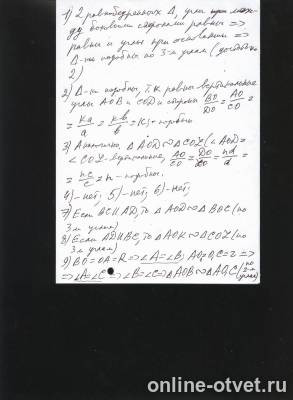 1) 2 равнобедренных Δ, углы при между боковыми сторонами равны =>
равны и углы при основании =>
Δ-ки подобны по 3-м углам (достаточно
2)
2) Δ-ки подобны, т.к. равны вертикальные
углы AOB и COD и стороны BO/DO = AO/CO =
= ka/a = kb/b = k; - подобны
3) Аналогично, ΔAOD ∾ ΔCOL (∠AOD =
∠COL - вертикальные, AO/CO = DO/LO = nd/d =
= nc/c = n - подобны.
4) - нет; 5) - нет; 6) - нет;
7) Если BC∥AD, то ΔAOD ∾ ΔBOC (по
3м углам)
8) Если AD∥BC, то ΔAOK ∾ ΔCOL (по
3м углам)
9) BO = OA = R => ∠A = ∠B;
=> ∠A = ∠C => ∠B = ∠C => ΔAOB ∾ ΔAO₁C (по 2-м углам)
online-otvet.ru